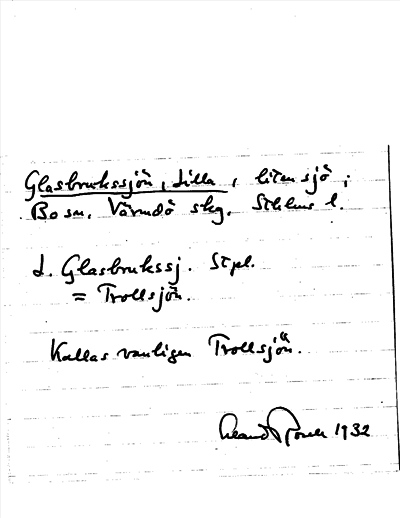 Glasbrukssjön, Lilla, liten sjö i
Bo sn, Värmdö skg, Sthlms l.
L. Glasbrukssj. Stpl.
= Trollsjön.
Kallas vanligen Trollsjön.
1932